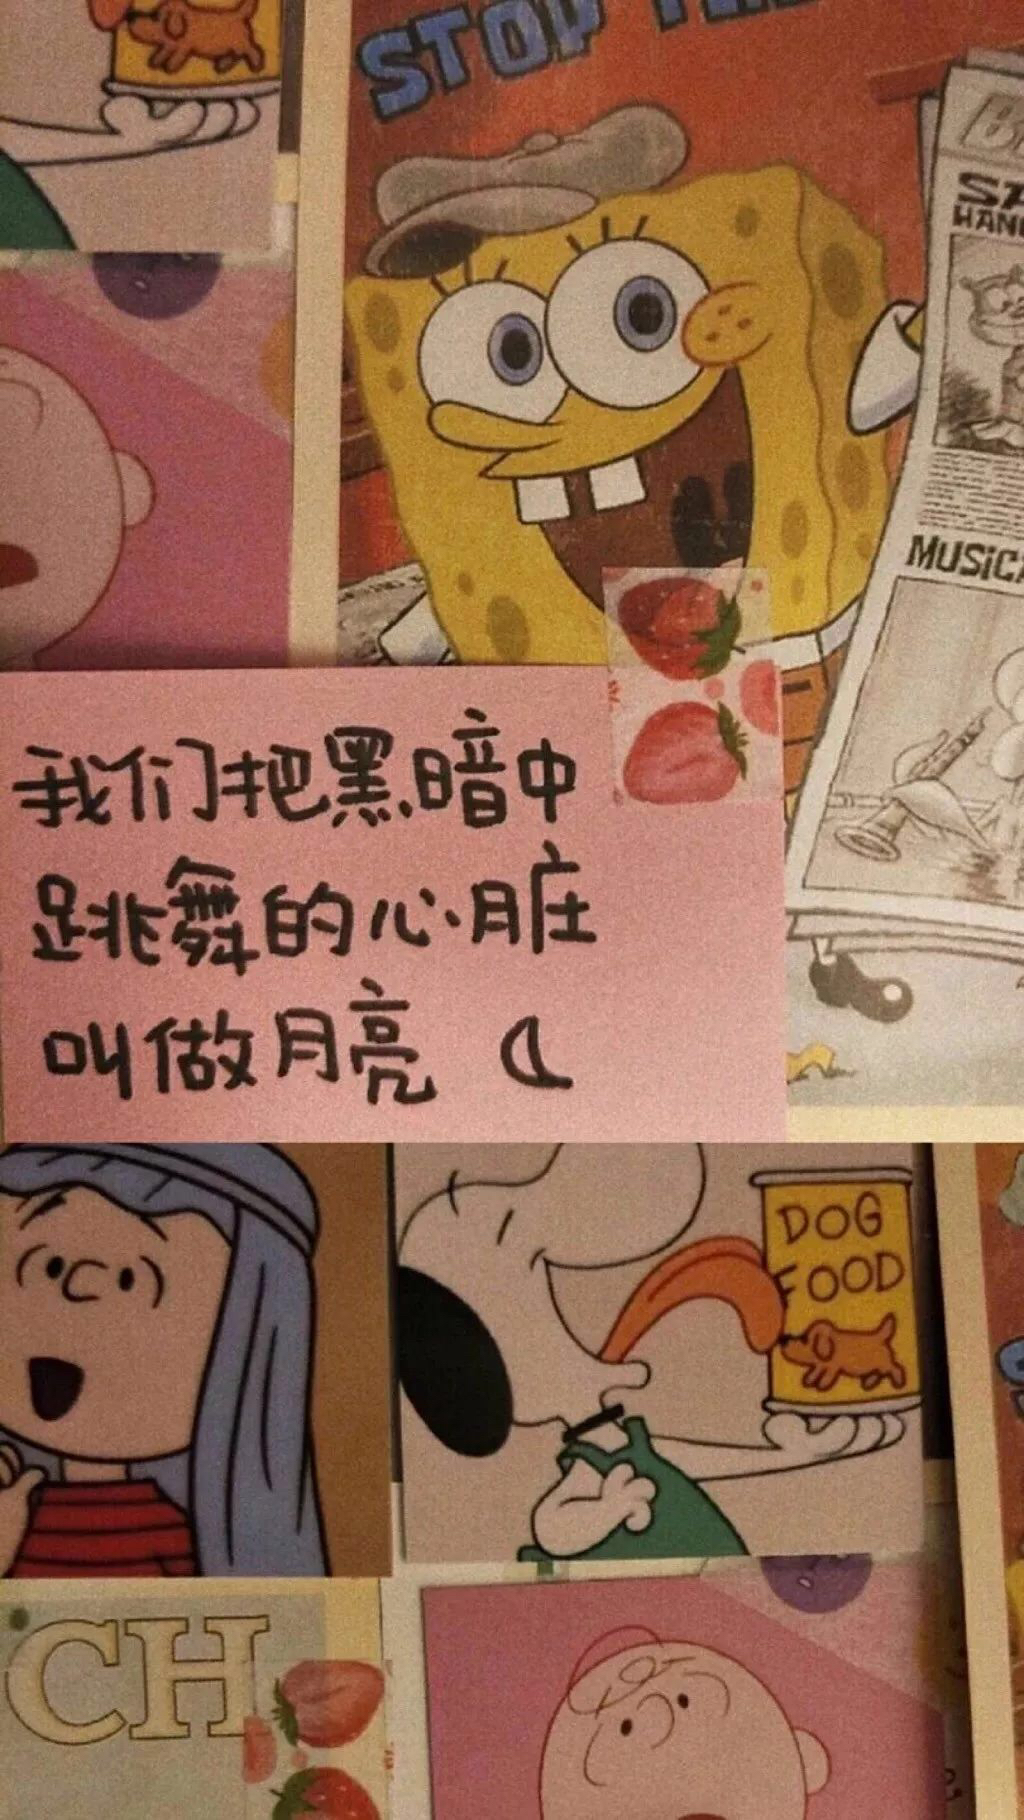 STOP
MUSIC
我们把黑暗中
跳舞的心脏
叫做月亮
DOG
FOOD
CH